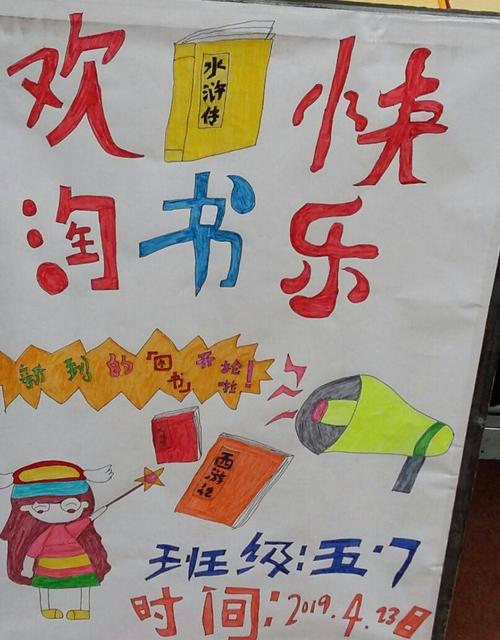 欢 快
水浒传
淘书乐
新到的「图书」开抢啦！
西游记
班级：五·7
时间：2019.4.23日